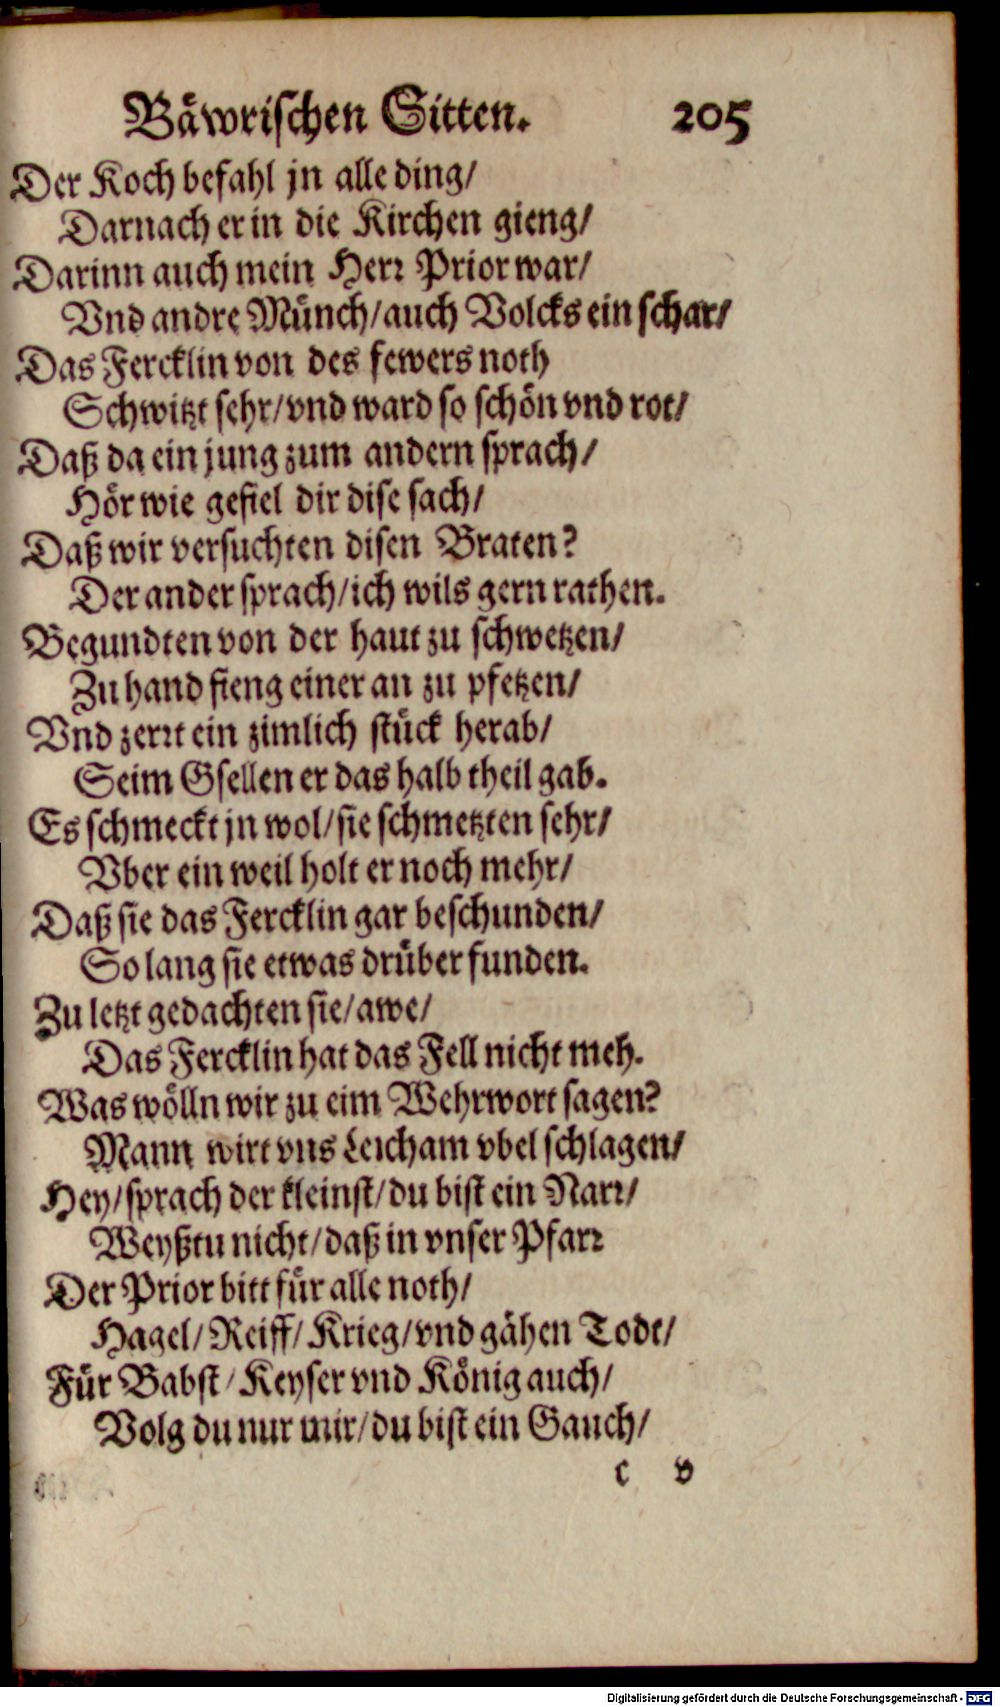 Bäwrischen Sitten. 205
Der Koch befahl jn alle ding/
Darnach er in die Kirchen gieng/
Darinn auch mein Herr Prior war/
Vnd andre Münch/auch Volcks ein schar/
Das Fercklin von des fewers noth
Schwitzt sehr/vnd ward so schön vnd rot/
Daß da ein jung zum andern sprach/
Hör wie gefiel dir dise sach/
Daß wir versuchten disen Braten?
Der ander sprach/ich wils gern rathen.
Begundten von der haut zu schwetzen/
Zu hand fieng einer an zu pfetzen/
Vnd zerrt ein zimlich stück herab/
Seim Gsellen er das halb theil gab.
Es schmeckt jn wol/sie schmetzten sehr/
Vber ein weil holt er noch mehr/
Daß sie das Fercklin gar beschunden/
So lang sie etwas drüber funden.
Zu letzt gedachten sie/awe/
Das Fercklin hat das Fell nicht meh.
Was wölln wir zu eim Wehrwort sagen?
Mann wirt vns Leicham vbel schlagen/
Hey/sprach der kleinst/du bist ein Narr/
Weyßtu nicht/daß in vnser Pfarr
Der Prior bitt für alle noth/
Hagel/Reiff/Krieg/vnd gähen Todt/
Für Babst/Keyser vnd König auch/
Volg du nur mir/du bist ein Gauch/
c v
Digitalisierung gefördert durch die Deutsche Forschungsgemeinschaft - DFG